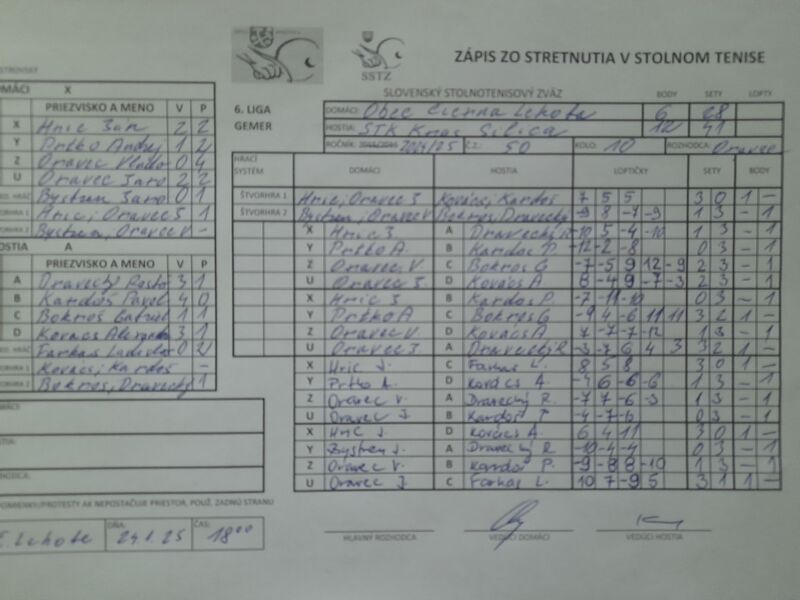 ZÁPIS ZO STRETNUTIA V STOLNOM TENISE
SSTZ
SLOVENSKÝ STOLNOTENISOVÝ ZVÄZ
BODY SETY LOPTY
6. LIGA
GEMER
DOMÁCI: Obec Cierna Lehota 6 28
HOSTIA: STK Kras Silica 12 41
ROČNÍK: 2024/25 Č.Z.: 50 KOLO: 10 ROZHODCA: Oravec
HRACÍ SYSTÉM DOMÁCI HOSTIA LOPTIČKY SETY BODY
ŠTVORHRA 1 Hric, Oravec J Kovács, Kardoš 7 5 5 3 0 1 -
ŠTVORHRA 2 Bystran, Oravec V Bokros, Dravecky -9 8 -7 -9 1 3 - 1
X Hric J A Dravecký R -10 5 -4 -10 1 3 - 1
Y Prtko A. B Kardos P. -12 -2 -8 0 3 - 1
Z Oravec V. C Bokros G -7 -5 9 12 -9 2 3 - 1
U Oravec J. D Kovács A 8 -4 9 -7 -3 2 3 - 1
X Hric J B Kardos P. -7 -11 -10 0 3 - 1
Y Prtko A C Bokros G -9 4 -6 11 11 3 2 1 -
Z Oravec V. D Kovács A 7 -7 -7 -12 1 3 - 1
U Oravec J A Dravecký R -3 -7 6 4 3 3 2 1 -
X Hric J. C Farkas L. 8 5 8 3 0 1 -
Y Prtko A. D Kovács A. -4 6 -6 -6 1 3 - 1
Z Oravec V. A Dravecký R. -7 7 -6 -3 1 3 - 1
U Oravec J. B Kardos P -4 -7 -6 0 3 - 1
X Hric J. D Kovács A. 6 4 11 3 0 1 -
Y Bystran J. A Dravecký R -10 -4 -4 0 3 - 1
Z Oravec V. B Kardos P. -9 -8 8 -10 1 3 - 1
U Oravec J. C Farkas L. 10 7 -9 5 3 1 1 -
HLAVNÝ ROZHODCA VEDÚCI DOMÁCI VEDÚCI HOSTIA
X
PRIEZVISKO A MENO V P
X Hric Ján 2 2
Y Prtko Andrej 1 2
Z Oravec Vlado 0 4
U Oravec Jaro 2 2
Bystran Jaro 0 1
Hric, Oravec J 1
Bystran, Oravec V -
OSTIA A
PRIEZVISKO A MENO V P
A Dravecký Rasťo 3 1
B Kardoš Pavel 4 0
C Bokroš Gabriel 1 1
D Kovács Alexander 3 1
Farkas Ladislav 0 2
Kovács, Kardoš -
Bokros, Dravecký 1
POMIENKY/PROTESTY AK NEPOSTAČUJE PRIESTOR, POUŽ. ZADNÚ STRANU
Lehota DŇA: 24.1.25 ČAS: 18⁰⁰